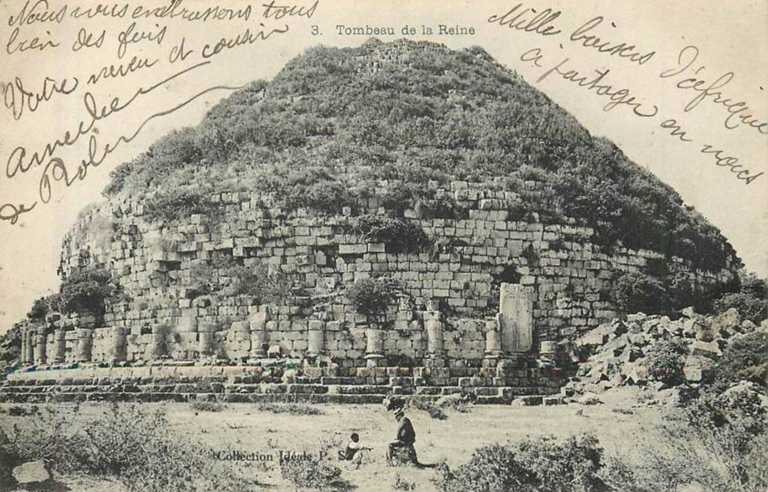 Nous vous embrassons tous
bien des fois
Votre neveu et cousin
Amédée
de Robin
3. Tombeau de la Reine
Mille baisers d'Afrique
à partager en nous
Collection Idéale P. S.